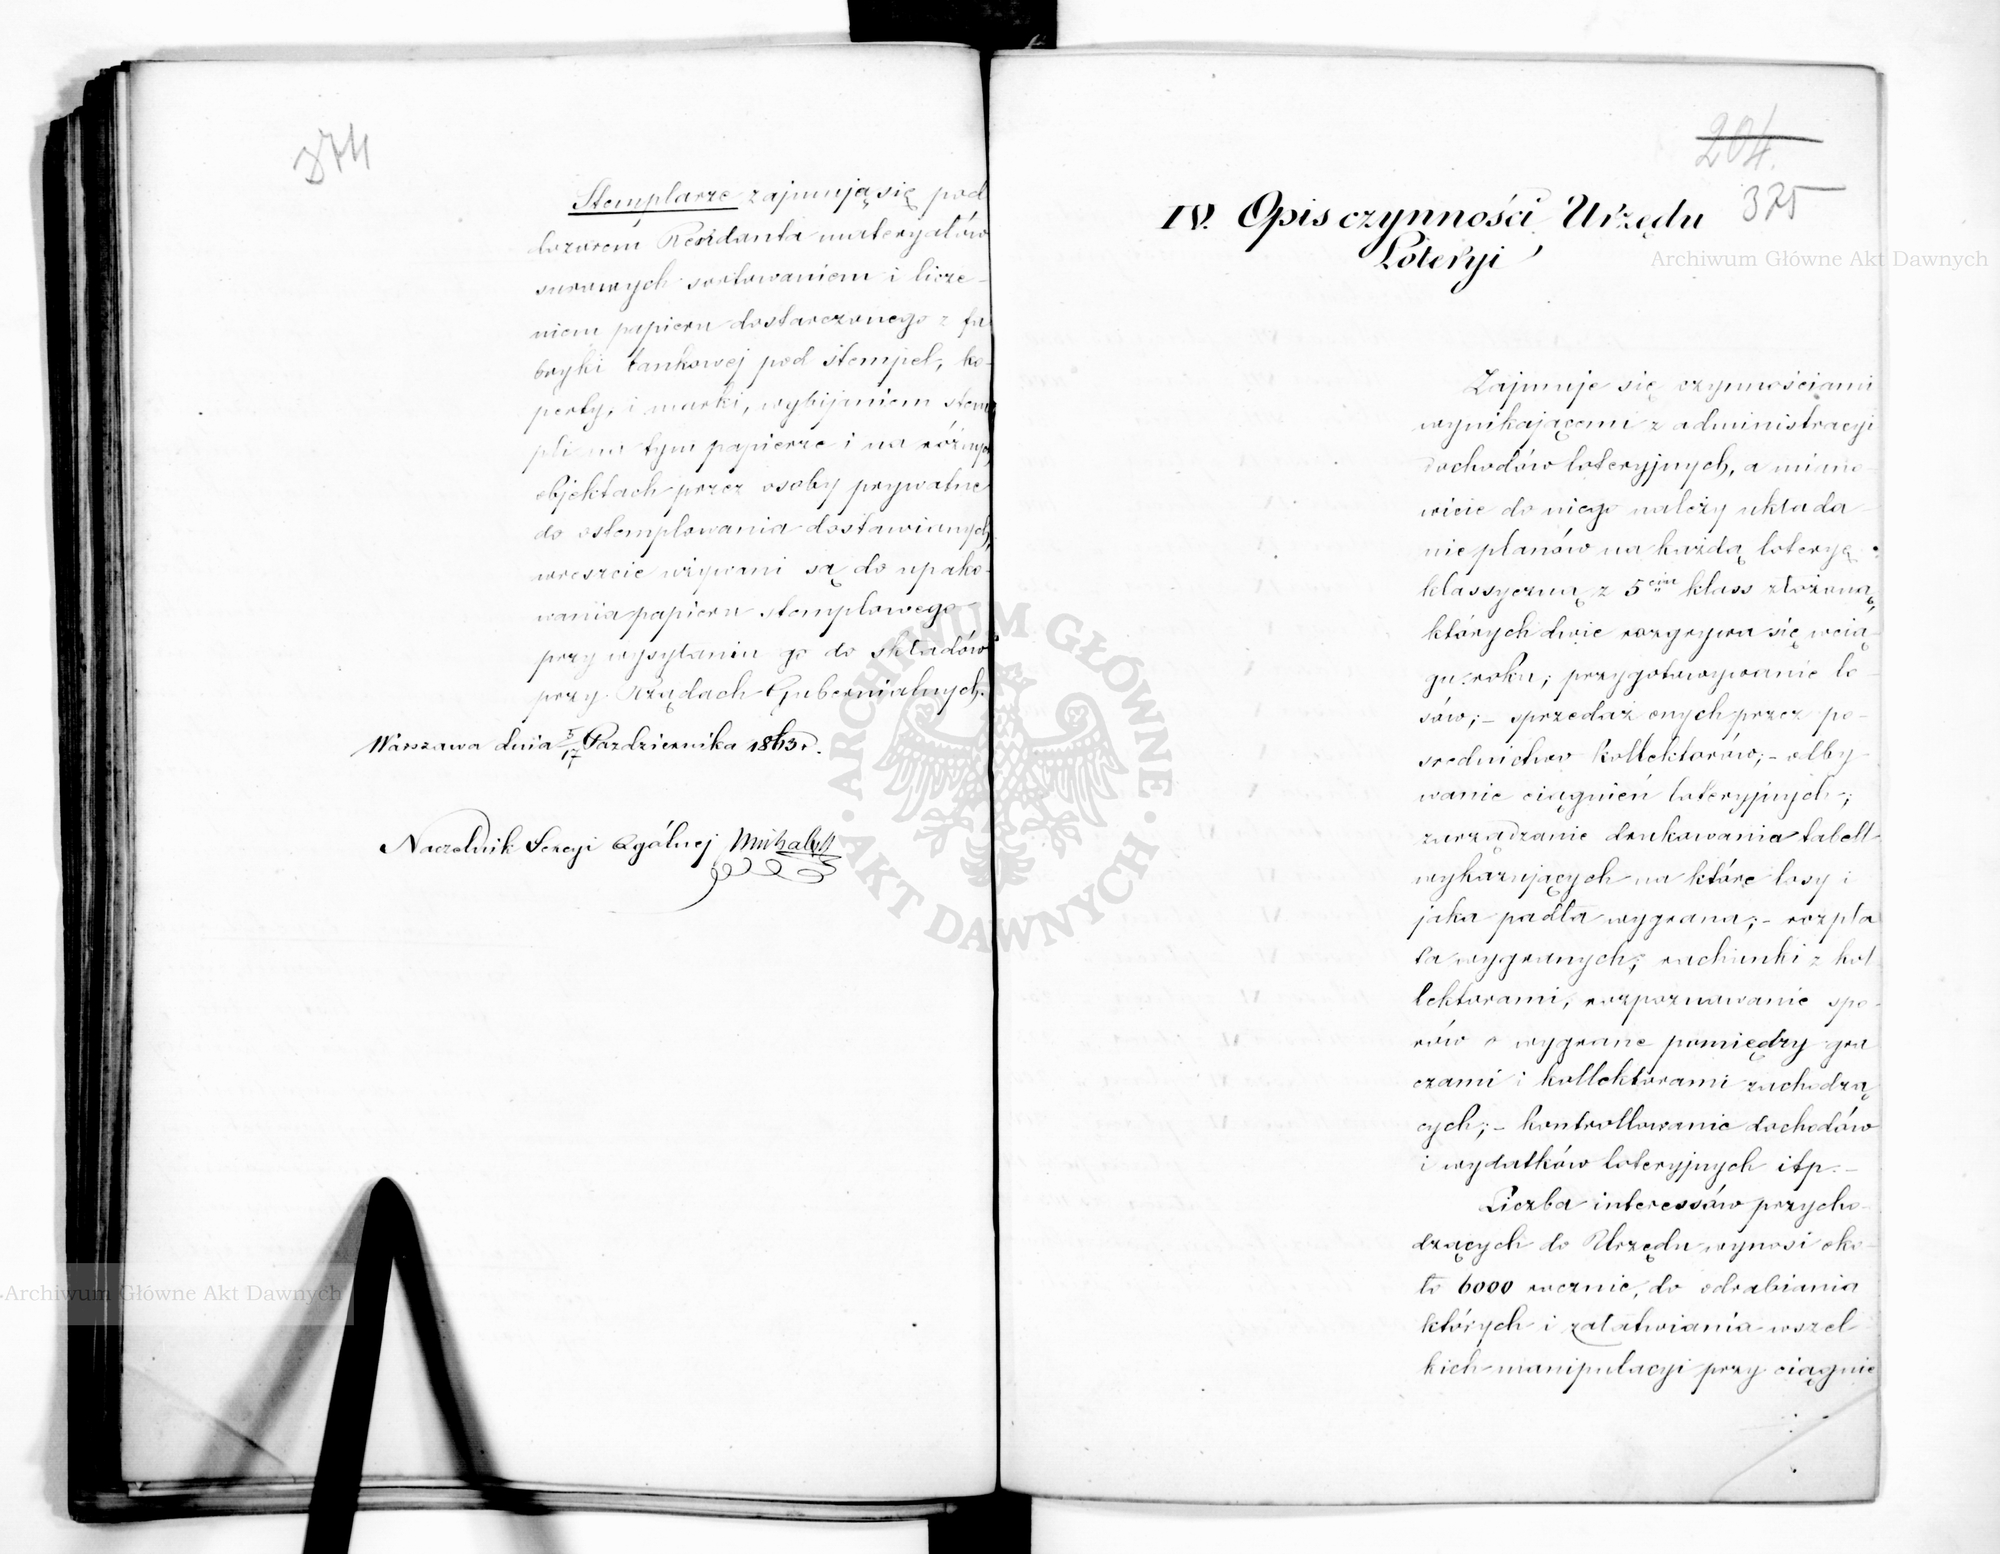 374
Stemplarze zajmują się pod
dozorem Rendanta materyałów
surowych sortowaniem i licze-
niem papieru dostarczonego z fa
bryki bankowej pod stempel, ko-
perty, i marki, wybijaniem stem
pli na tym papierze i na różnych
objektach przez osoby prywatne
do ostemplowania dostawianych,
wreszcie używani są do upako-
wania papieru stemplowego
przy wysyłaniu go do składów
przy Rządach Gubernialnych.
Warszawa dnia 5/17 Października 1863 r.
Naczelnik Sekcyi Ogólnej
204.
375
IV. Opis czynności Urzędu
Loteryi
Zajmuje się czynnościami
wynikającemi z administracyi
dochodów loteryjnych, a miano-
wicie do niego należy układa-
nie planów na każdą loteryę
klassyczną z 5ciu klass złożoną,
których dwie rozgrywa się w cią-
gu roku; przygotowywanie lo-
sów; – sprzedaż onych przez po-
srednictwo Kollektorów; – odby-
wanie ciągnień loteryjnych;
zarządzanie drukowania tabell
wykazujących na które losy i
jaka padła wygrana; – rozpła
ta wygranych; rachunki z kol-
lektorami, rozpoznawanie spo-
rów o wygrane pomiędzy gra
czami i kollektorami zachodzą
cych; – kontrollowanie dochodów
i wydatków loteryjnych itp. –
Liczba interessów przycho-
dzących do Urzędu wynosi oko-
ło 6000 rocznie, do odrabiania
których i załatwiania wszel-
kich manipulacyi przy ciągnie
Archiwum Główne Akt Dawnych
ARCHIWUM GŁÓWNE · AKT DAWNYCH ·
Archiwum Główne Akt Dawnych